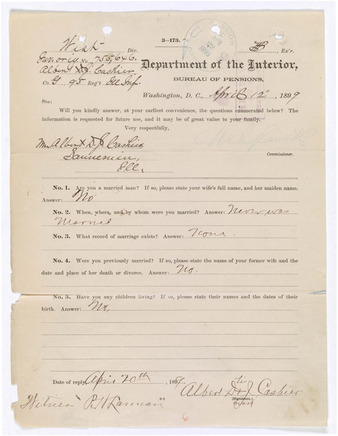 3—173.
West Div.
B Ex'r.
No. 755,646.
Albert D J Cashier
Co. G 95 Reg't Ill Inf.
Department of the Interior,
BUREAU OF PENSIONS,
Washington, D. C., April 12, 1897
Sir:
Will you kindly answer, at your earliest convenience, the questions enumerated below? The
information is requested for future use, and it may be of great value to your family.
Very respectfully,
Mr Albert D J Cashier
Saunemin,
Ill.
Commissioner.
No. 1. Are you a married man? If so, please state your wife's full name, and her maiden name.
Answer: No
No. 2. When, where, and by whom were you married? Answer: Never was
Married
No. 3. What record of marriage exists? Answer: None.
No. 4. Were you previously married? If so, please state the name of your former wife and the
date and place of her death or divorce. Answer: No.
No. 5. Have you any children living? If so, please state their names and the dates of their
birth. Answer: No,
Date of reply, April 20th, 1897
Albert D J Cashier
Witness